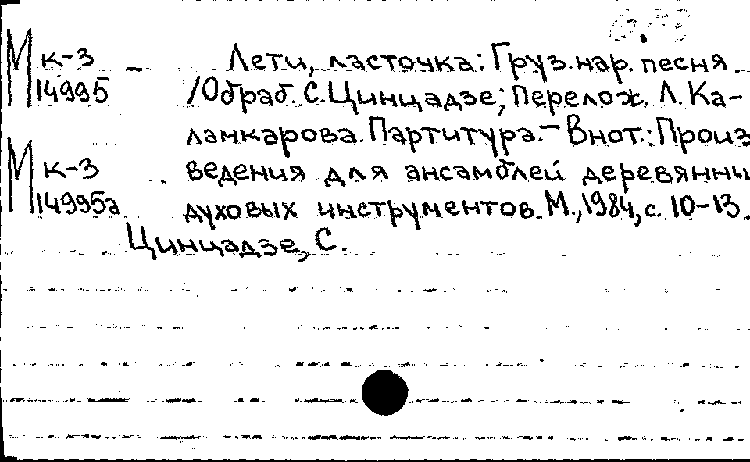 М к-3 Лети, ласточка: Груз. нар. песня
14995 /Обраб. С. Цинцадзе; Перелож. Л. Ка-
ламкарова. Партитура. - В нот.: Произ
М к-3 ведения для ансамблей деревянны
14995а духовых инструментов. М., 1984, с. 10-13.
Цинцадзе, С.